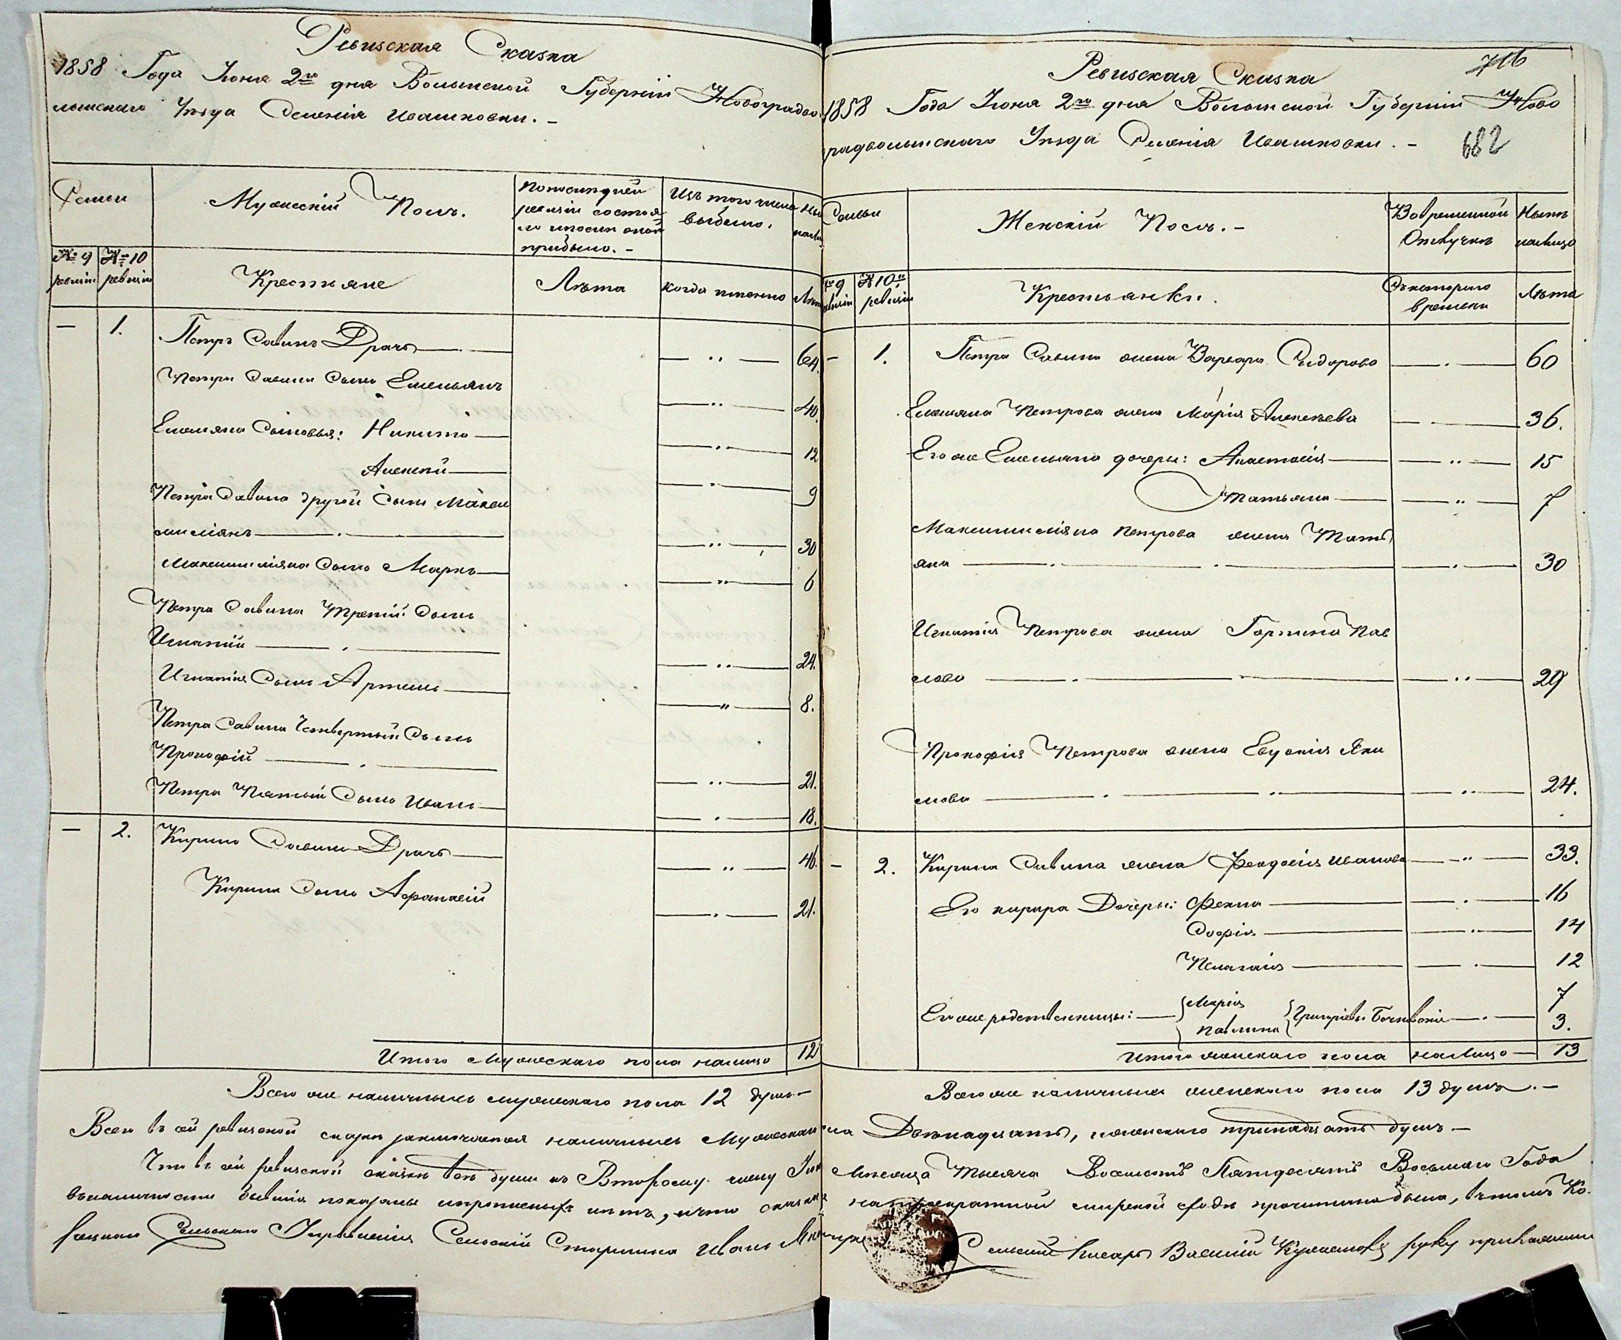 Ревизская Сказка
1858 Года Июня 2го дня Волынской Губерніи Новоградво
лынскаго Уѣзда Селенія Ивашковки. –
Семьи
Мужескій Полъ.
По последней
ревизіи состоя
ло и после оной
прибыло. –
Изъ того числа
выбыло.
№ 9
ревизіи
№ 10
ревизіи
Крестьяне
Лѣта
когда именно
Лѣта
– 1. Петръ Савинъ Драчъ — „ — 64.
Петра Савина сынъ Емельянъ — „ — 40.
Емельяна Сыновья: Никита — „ — 12
Алексей — „ — 9
Петра Савина другой сынъ Макси
миліянъ — „ — 30
Максимиліяна сынъ Маркъ — „ — 6
Петра Савина Третій сынъ
Игнатій — „ — 24.
Игнатія Сынъ Артемъ — „ — 8.
Петра Савина Четвертый Сынъ
Прокофій — „ — 21.
Петра Пятый Сынъ Иванъ — „ — 18.
– 2. Кирило Савинъ Драчъ — „ — 46.
Кирила сынъ Афанасій — „ — 21.
Итого Мужескаго пола налицо 12
Всего же наличныхъ мужескаго пола 12 душъ –
716
Ревизская Сказка
1858 Года Июня 2го дня Волынской Губерніи Ново
градволынскаго Уѣзда Селенія Ивашковки. –
682
Семьи
Женскій Полъ. –
Во временной
Отлучкѣ
Нынѣ
налицо
№ 9
ревизіи
№ 10й
ревизіи
Крестьянки.
Съ котораго
времени
Лѣта
– 1. Петра Савина жена Варвара Сидорова — 60
Емельяна Петрова жена Марія Алексѣева — 36.
Его же Емельяна дочери: Анастасія — „ — 15
Татьяна — „ — 7
Максимиліяна Петрова жена Тать
яна — 30
Игнатія Петрова жена Горпина Пав
лова — „ — 29
Прокофія Петрова жена Евдокія Яки
мова — „ — 24.
– 2. Кирила Савина жена Феодосія Иванова — „ — 33.
Его Кирила Дочеры: Фекла — 16
Софія — 14
Пелагія — 12
Его же родственницы: — Марія 7
Павлина Григоріевы 3.
Итого женскаго пола налицо — 13
Всего же наличныхъ женскаго пола 13 душъ. –
Всего въ сей ревизской сказкѣ заключается наличныхъ Мужеска пола Двѣнадцать, женскаго тринадцать душъ –
Что въ сей ревизской сказкѣ всѣ души ко Второму числу Июня Мѣсяца Тысяча Восемсотъ Пятдесятъ Восьмаго Года
въ наличности бывшія показаны и прописныхъ нѣтъ, и что сказка на мирской сходѣ прочитана была, въ томъ
Сельскаго Управленія Сельскій Старшина Иванъ Сельскій Писарь Василій руку приложили